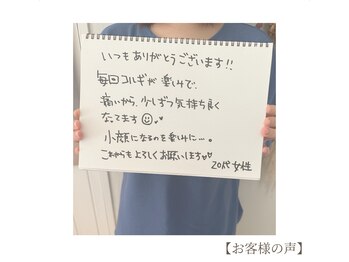 いつもありがとうございます!!
毎回コルギが楽しみで、
痛いから、少しずつ気持ち良く
なってます☺♥
小顔になるのを楽しみに…。
これからもよろしくお願いします♥♥
20代 女性
【お客様の声】